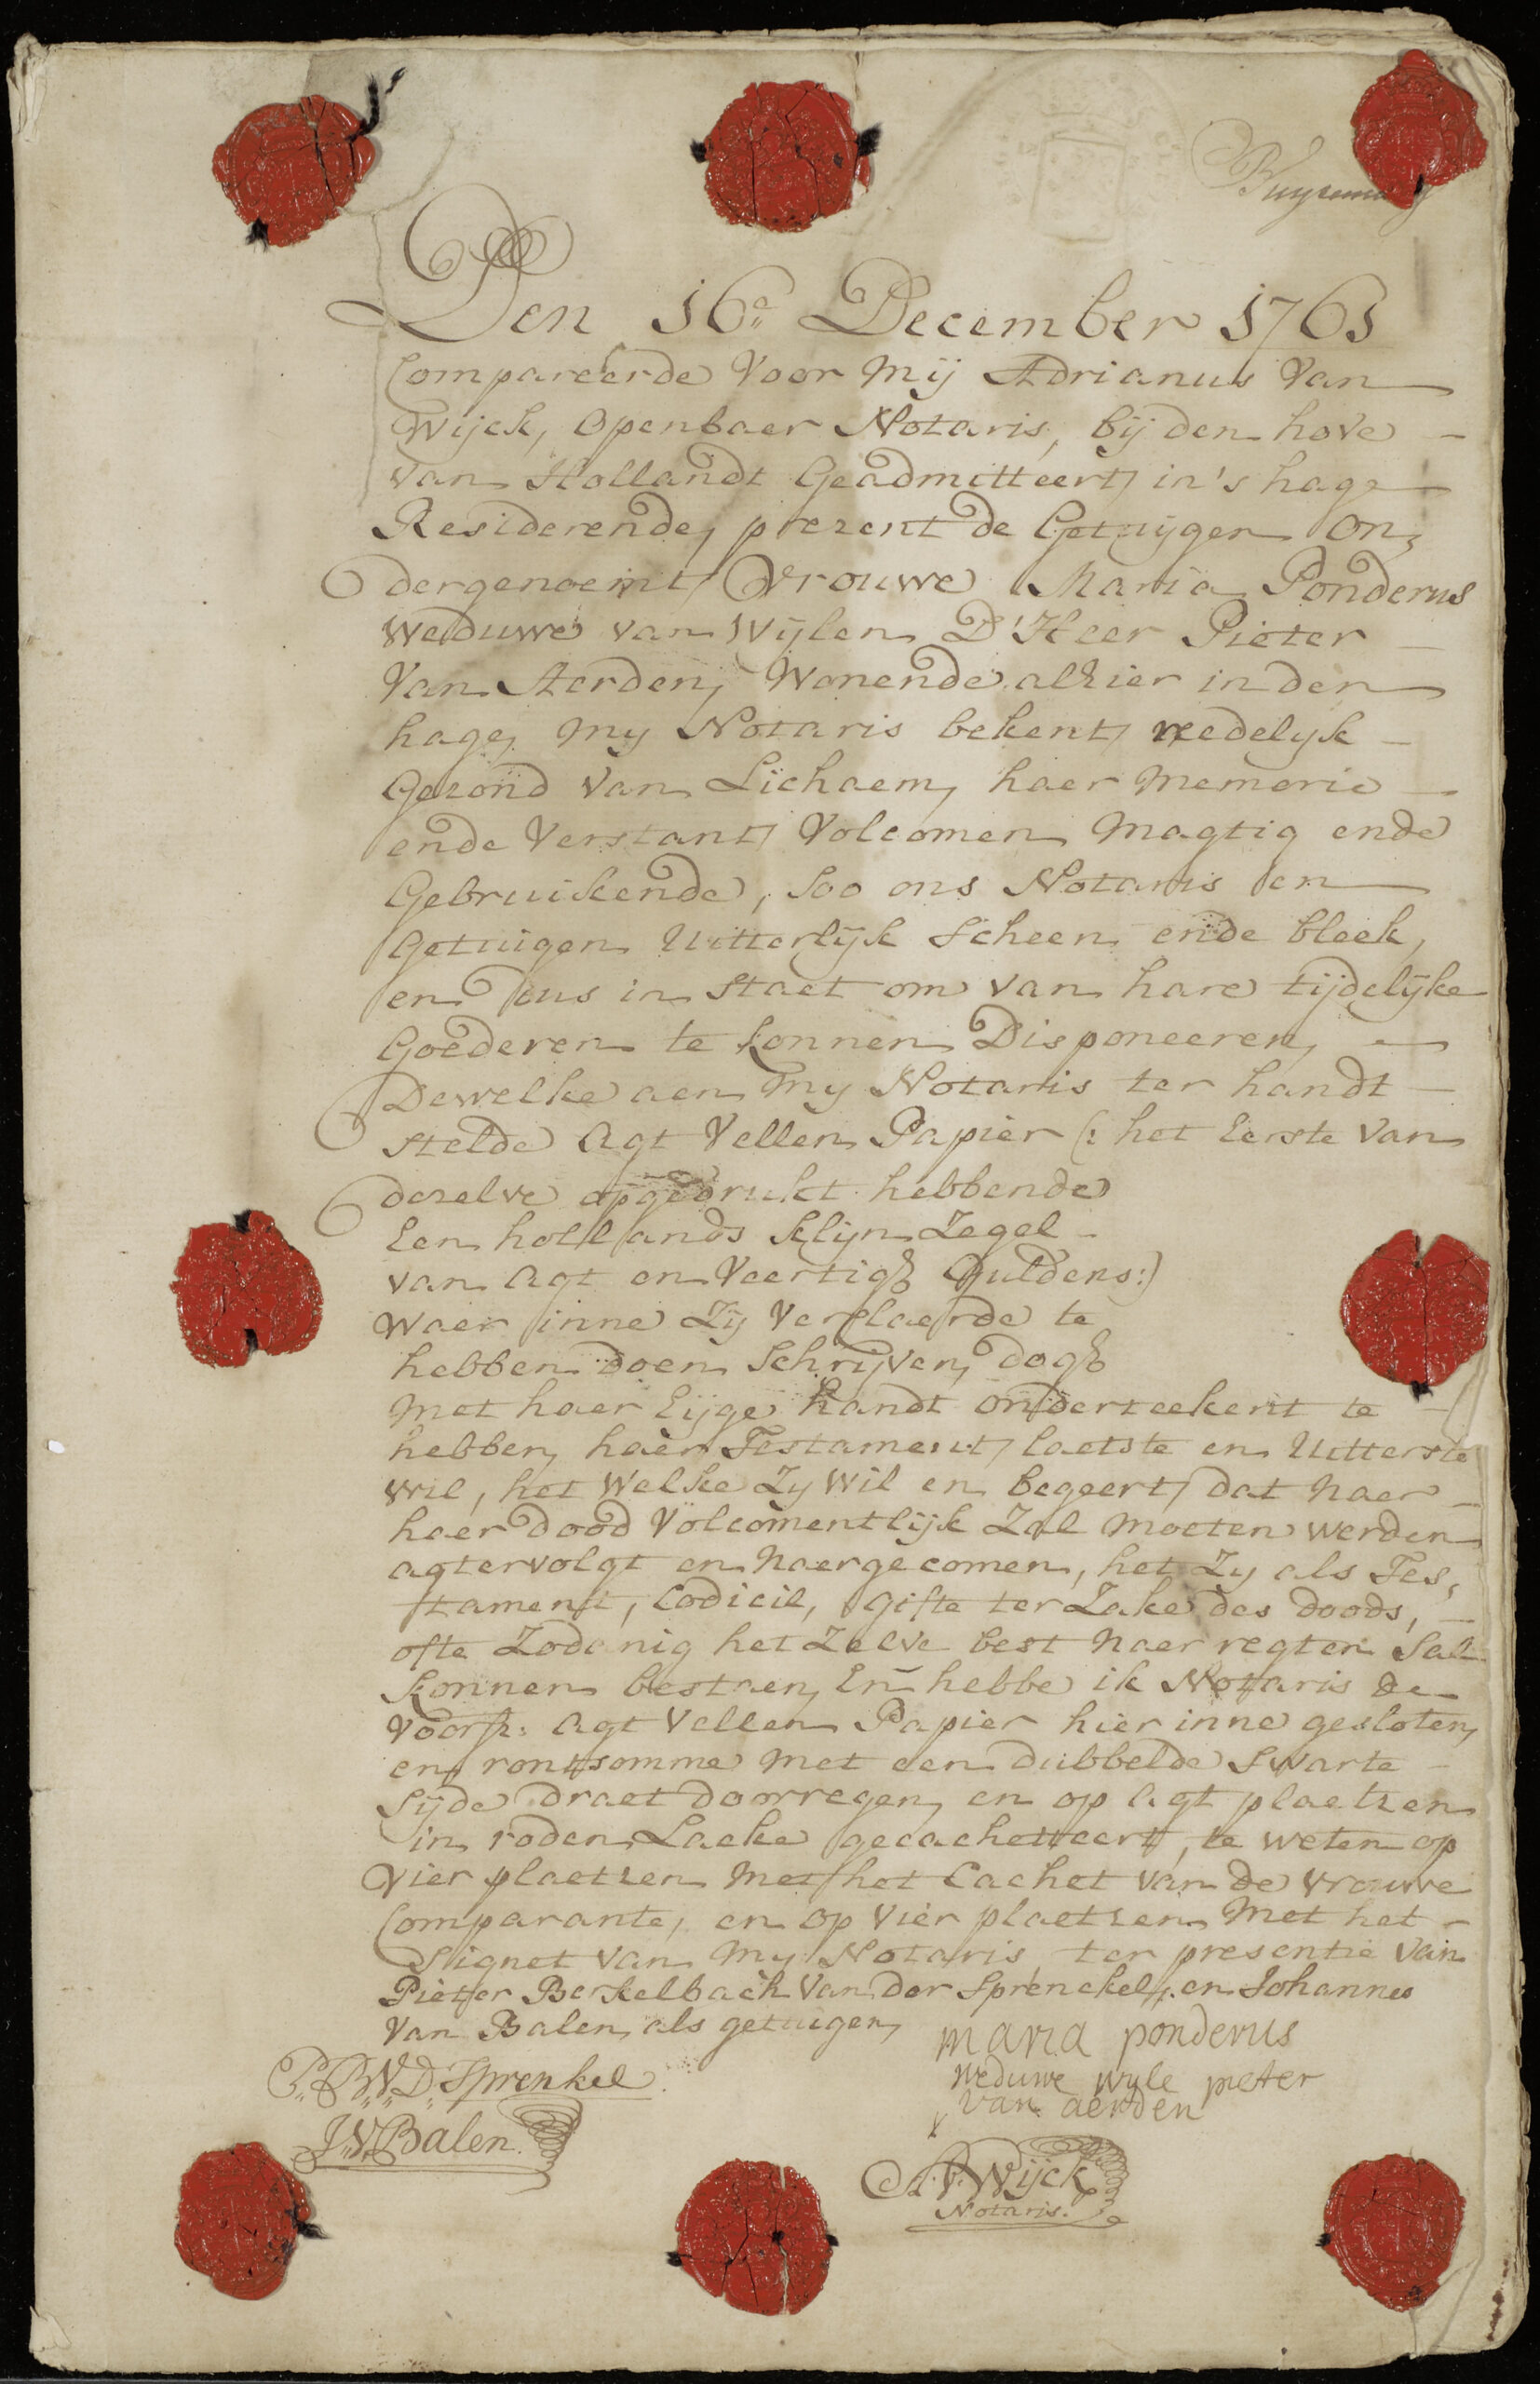 Den 16e December 1761
Compareerde voor mij Adrianus van
Wijck, openbaer Notaris, bij den hove
van Hollandt Geadmitteert, in 's hage
Residerende, present de Getuijgen On,
dergenoemt, Vrouwe Maria Ponderus
Weduwe van Wijlen D'Heer Pieter
Van Aerden, Wonende alhier in den
hage, my Notaris bekent, reedelyk
Gezond van Lichaem, haer Memorie
ende Verstant, Volcomen Magtig ende
Gebruikende, soo ons Notaris en
Getuigen Uitterlijk scheen ende bleek,
en dus in Staet om van hare tijdelijke
Goederen te konnen Disponeeren,
Dewelke aen my Notaris ter handt
stelde Agt Vellen Papier (: het Eerste van
deselve opgedrukt hebbende
Een hollands klijn Zegel
van Agt en Veertigh Guldens:)
Waer inne Zij Verclaerde te
hebben doen Schrijven, dogh
met haer Eijge handt onderteekent te
hebben, haer Testament, laetste en Uitterste
wil, het Welke Zy Wil en begeert, dat naer
haer dood Volcomentlijk Zal moeten werden
agtervolgt en naergecomen, het Zy als Tes,
tament, Codicil, gifte ter Zake des doods,
ofte Zodanig het Zelve best naer regten Sal
konnen bestaen, En hebbe ik Notaris de
Voorsz: Agt Vellen Papier hier inne gesloten,
en rontsomme met een dubbelde Swarte
Sijde draet doorregen, en op Agt plaetzen
in roden Lacke gecachetteert, te weten op
Vier plaetzen met het Cachet van de vrouwe
Comparante, en op Vier plaetzen met het
Signet van my Notaris, ter presentie van
Pieter Berkelbach van der Sprenckel, en Johannes
Van Balen, als getuigen,
maria ponderus
weduwe wyle pieter
van aerden
P. B. V. D. Sprenkel
J. V. Balen.
A. V. Wijck
Notaris.